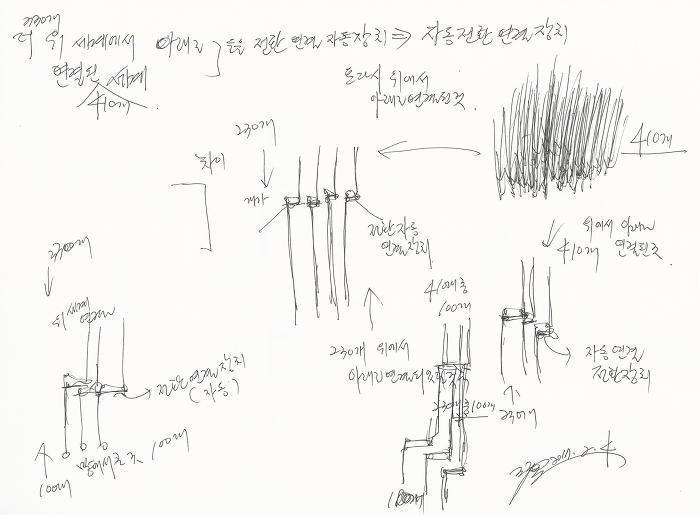 230개
더 위 세계에서 아래로
연결된 세계
410개
들을 전환 연결 자동장치 ⇒ 자동전환 연결장치
또다시 위에서
아래로 연결된 것
410개
230개
차이
전환 자동
연결장치
위에서 아래로
410개 연결된 것
자동 연결
전환장치
230개
410개 중
100개
230개 위에서
230개
위 세계
전환 연결장치
(자동)
100개
100개
230개 중 100개
100개
2011. 2. 4